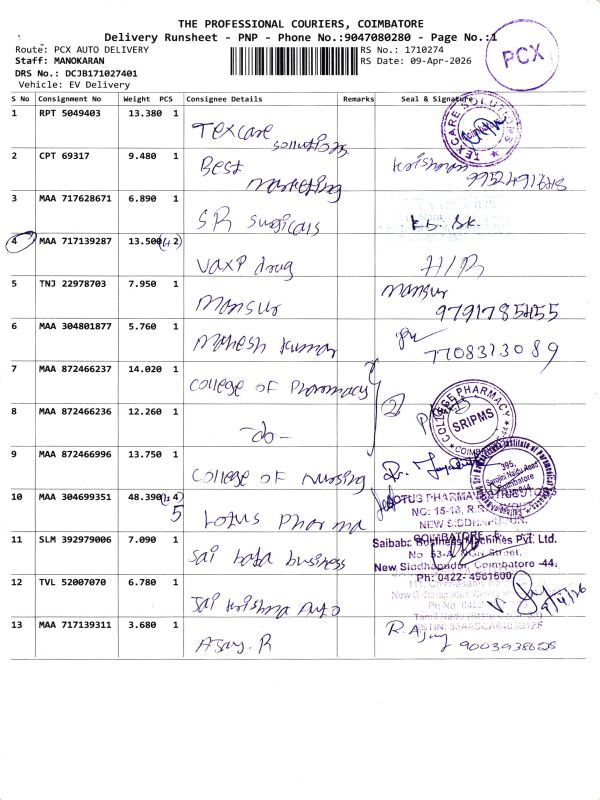 THE PROFESSIONAL COURIERS, COIMBATORE
Delivery Runsheet - PNP - Phone No.:9047080280 - Page No.:1
Route: PCX AUTO DELIVERY
RS No.: 1710274
Staff: MANOKARAN
RS Date: 09-Apr-2026
DRS No.: DCJB171027401
Vehicle: EV Delivery
PCX
S No Consignment No Weight PCS Consignee Details Remarks Seal & Signature
1 RPT 5049403 13.380 1 Texcare sollutions
TEXCARE SOLUTIONS
2 CPT 69317 9.480 1 Best marketing
3 MAA 717628671 6.890 1 SR surgicals
4 MAA 717139287 13.500 2 vaxp drug
5 TNJ 22978703 7.950 1 Mansur mansur
6 MAA 304801877 5.760 1 Mahesh kumar 7708313089
7 MAA 872466237 14.020 1 College of Pharmacy
8 MAA 872466236 12.260 1 -do-
COLLEGE PHARMACY
SRIPMS
9 MAA 872466996 13.750 1 College of Nursing
395,
Sarojini Naidu Road
Coimbatore
10 MAA 304699351 48.390 4 5 Lotus Pharma
LOTUS PHARMA
NEW SIDDHAPUDUR,
11 SLM 392979006 7.090 1 Sai baba business
Saibaba Business Machines Pvt. Ltd.
No 63-A, Street,
New Siddhapudur, Coimbatore -44.
Ph: 0422- 4561600
12 TVL 52007070 6.780 1 Sai krishna Auto
9/4/26
13 MAA 717139311 3.680 1 Ajay. R R. Ajay